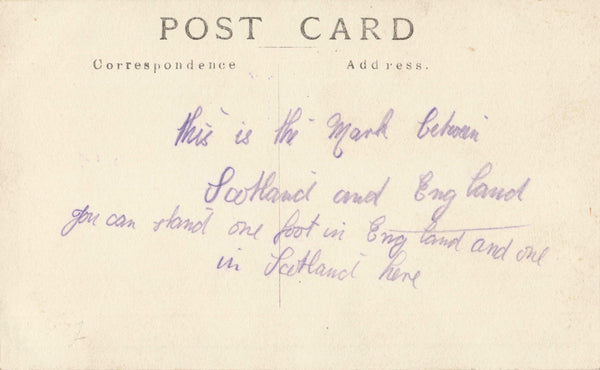 POST CARD
Correspondence Address.
this is the Mark between
Scotland and England
you can stand one foot in England and one
in Scotland here